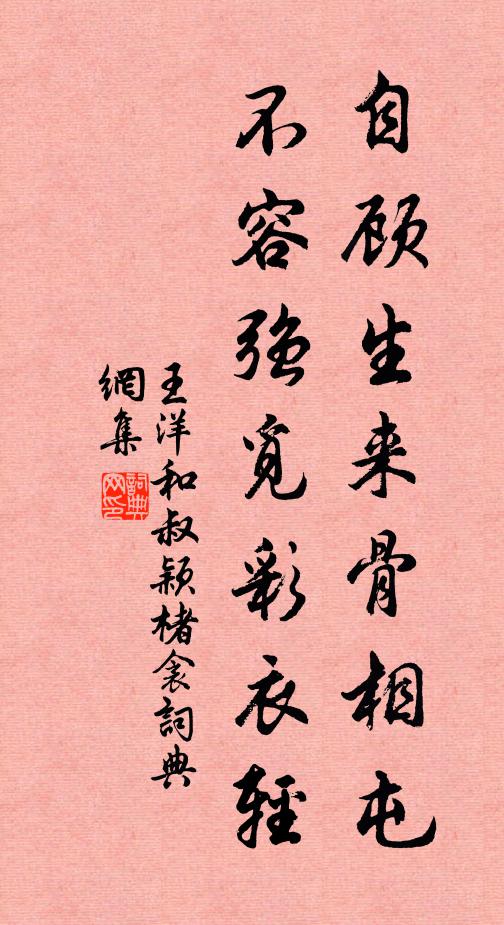 自顾生来骨相屯
不容强觅彩衣轻
王洋和叔颖楮衾詞典
網集
詞典
网印